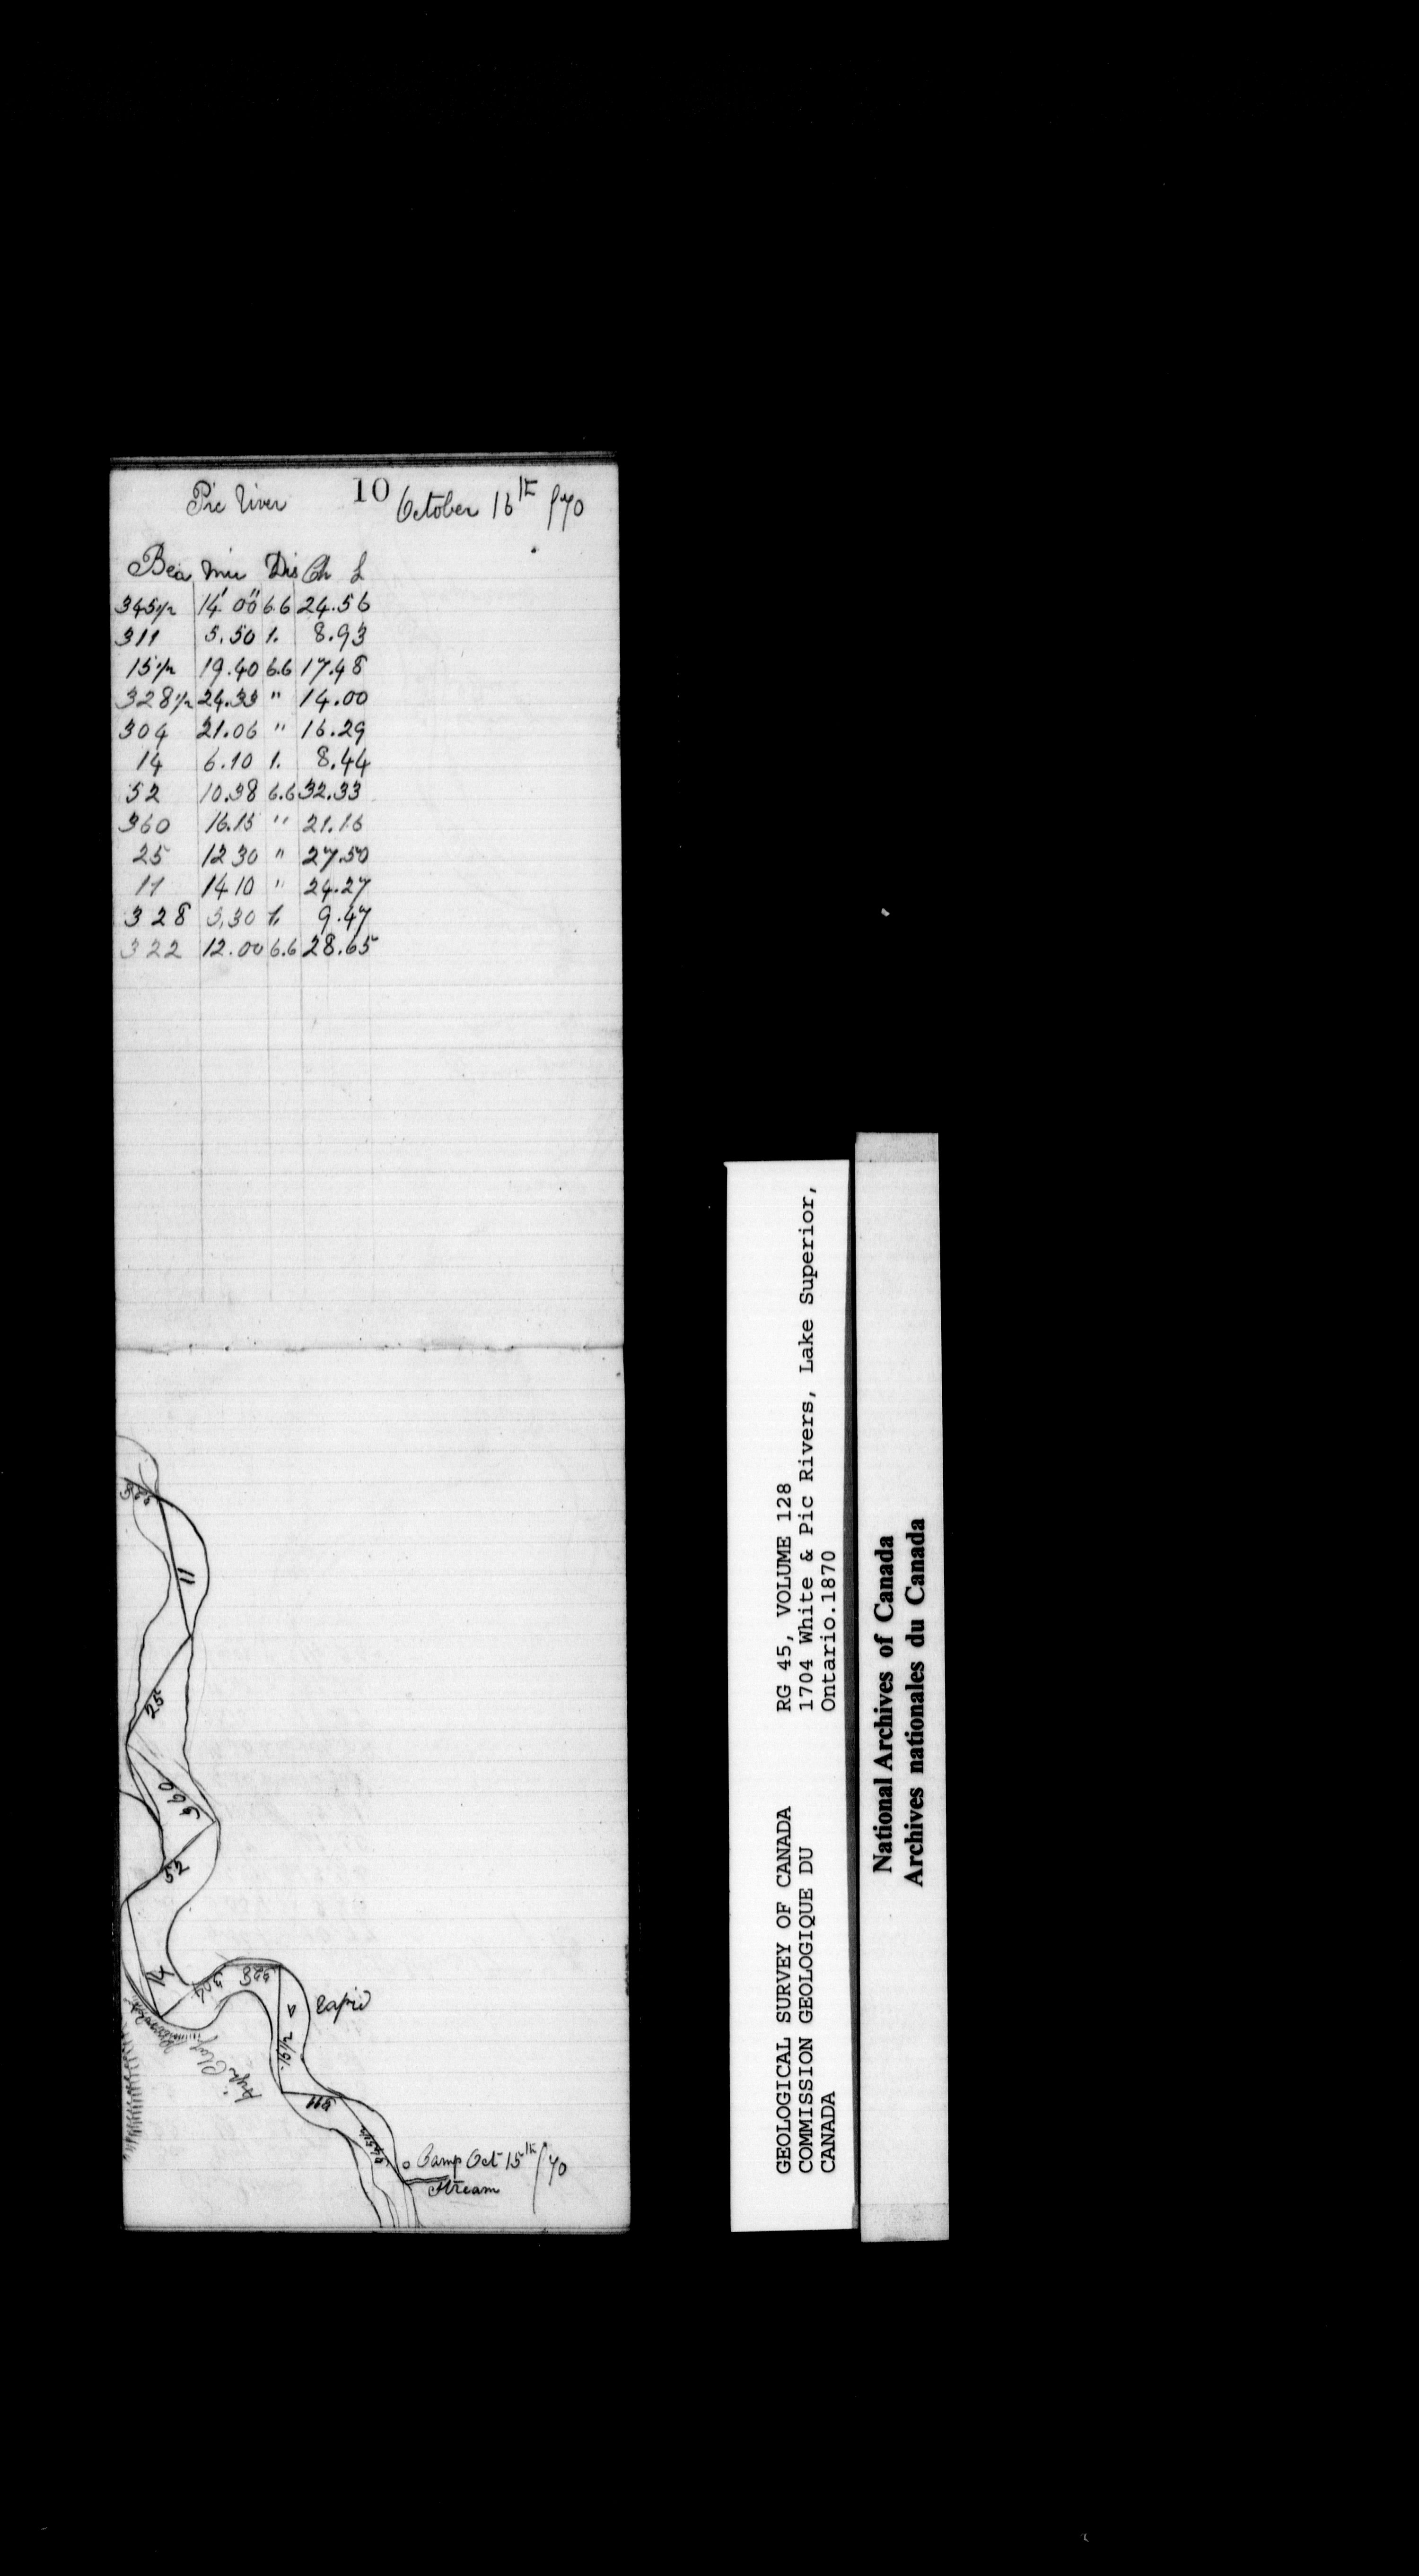 Pic River 10 October 16th /70
Bea Min Dis Ch L
345½ 14' 00" 6.6 24.56
311 5.50 1. 8.93
15½ 19.40 6.6 17.48
328½ 24.33 " 14.00
304 21.06 " 16.29
14 6.10 1. 8.44
52 10.38 6.6 32.33
360 16.15 " 21.16
25 12 30 " 27.50
11 14 10 " 24.27
328 5,30 1. 9.47
322 12.00 6.6 28.65
11
25
360
52
14
Rapid
15½
311
345½
High Clay
Camp Oct 15th /70
Stream
GEOLOGICAL SURVEY OF CANADA
COMMISSION GEOLOGIQUE DU
CANADA
RG 45, VOLUME 128
1704 White & Pic Rivers, Lake Superior,
Ontario.1870
National Archives of Canada
Archives nationales du Canada